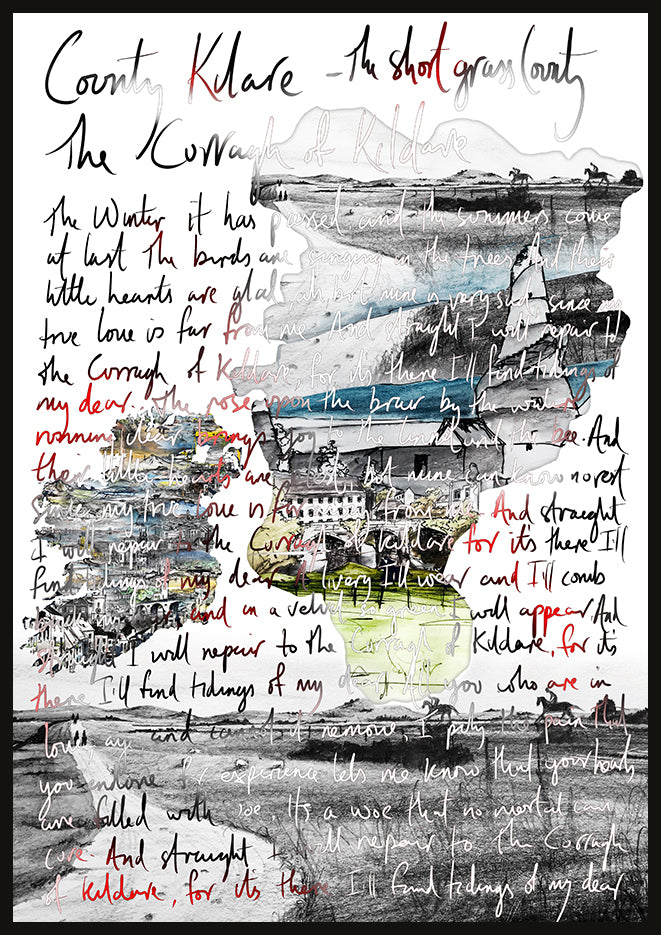 County Kildare - The short grass County
The Curragh of Kildare
The Winter it has passed and the summers come
at last The birds are singing in the trees And their
little hearts are glad ah, but mine is very sad since my
true love is far from me And straight I will repair to
the Curragh of Kildare, for it's there I'll find tidings of
my dear. The rose upon the briar by the water
running clear brings joy to the linnet and the bee. And
their little hearts are but mine can know no rest
Since my true love is far from me And straight
I will repair to the Curragh of Kildare for it's there I'll
find tidings of my dear A livery I'll wear and I'll comb
back my hair and in a velvet so green I will appear And
straight I will repair to the Curragh of Kildare, for it's
there I'll find tidings of my dear All you who are in
love aye and cannot it remove, I pity the pain that
you endure for experience lets me know that your hearts
are filled with woe, It's a woe that no mortal can
cure And straight I will repair to the Curragh
of Kildare, for it's there I'll find tidings of my dear